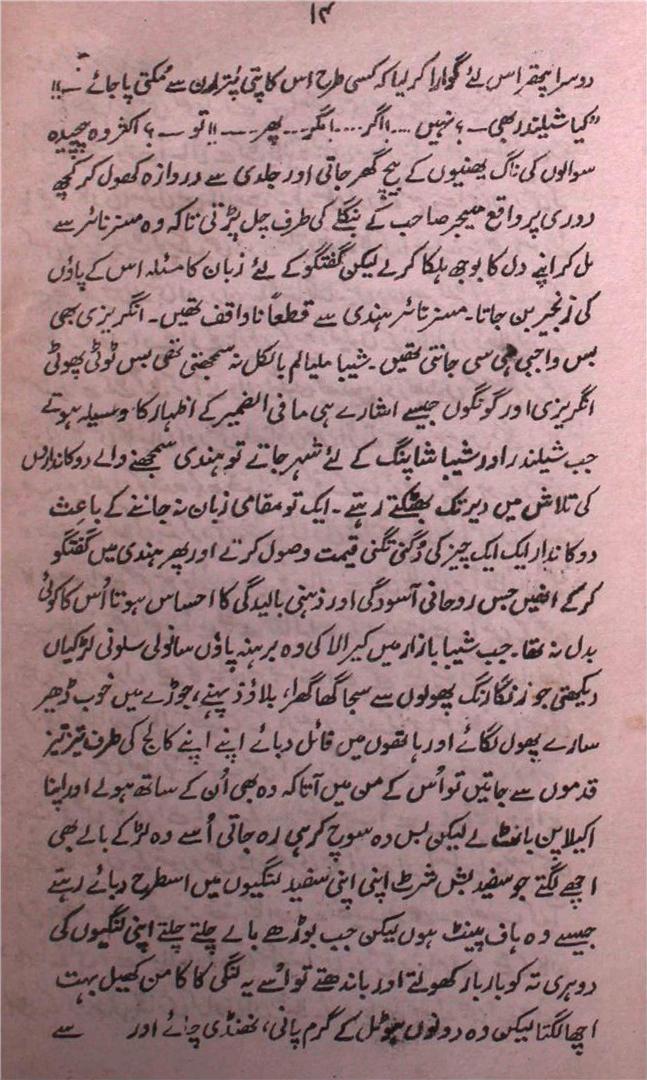 ۱۴
دوسرا پتھر اس لئے گوارا کر لیا کہ کسی طرح اس کا پتی پُتر لدن سے مُکتی پا جائے ـــ!!
”کیا شیلندر بھی ـــ؟ نہیں ...! اگر ....! مگر... پھر ـــ!! تو ـــ؟ اکثر وہ پیچیدہ
سوالوں کی ناگ پھنیوں کے بیچ گھر جاتی اور جلدی سے دروازہ کھول کر کچھ
دوری پر واقع میجر صاحب کے بنگلے کی طرف چل پڑتی تاکہ وہ مسز نائر سے
مل کر اپنے دل کا بوجھ ہلکا کر لے لیکن گفتگو کے لئے زبان کا مسئلہ اس کے پاؤں
کی زنجیر بن جاتا۔ مسز نائر ہندی سے قطعاً ناواقف تھیں۔ انگریزی بھی
بس واجبی ہی سی جانتی تھیں۔ شیبا ملیالم بالکل نہ سمجھتی تھی بس ٹوٹی پھوٹی
انگریزی اور گونگوں جیسے اشارے ہی مافی الضمیر کے اظہار کا وسیلہ ہوتے
جب شیلندر اور شیبا شاپنگ کے لئے شہر جاتے تو ہندی سمجھنے والے دوکانداروں
کی تلاش میں دیر تک بھٹکتے رہتے۔ ایک تو مقامی زبان نہ جاننے کے باعث
دوکاندار ایک ایک چیز کی دُگنی تگنی قیمت وصول کرتے اور پھر ہندی میں گفتگو
کر کے انھیں جس روحانی آسودگی اور ذہنی بالیدگی کا احساس ہوتا اُس کا کوئی
بدل نہ تھا۔ جب شیبا بازار میں کیرالا کی وہ برہنہ پاؤں سانولی سلونی لڑکیاں
دیکھتی جو رنگارنگ پھولوں سے سجا گھاگھرا، بلاؤز پہنے، جوڑے میں خوب ڈھیر
سارے پھول لگائے اور ہاتھوں میں فائل دبائے اپنے اپنے کالج کی طرف تیز تیز
قدموں سے جاتیں تو اُس کے من میں آتا کہ وہ بھی اُن کے ساتھ ہولے اور اپنا
اکیلا پن بانٹ لے لیکن بس وہ سوچ کر ہی رہ جاتی اُسے وہ لڑکے بالے بھی
اچھے لگتے جو سفید بش شرٹ اپنی اپنی سفید لنگیوں میں اسطرح دبائے رہتے
جیسے وہ ہاف پینٹ ہوں لیکن جب بوڑھے بالے چلتے چلتے اپنی لنگیوں کی
دوہری تہ کو بار بار کھولتے اور باندھتے تو اُسے یہ لنگی کا کامن کھیل بہت
اچھا لگتا لیکن وہ دونوں ہوٹل کے گرم پانی، ٹھنڈی چائے اور سے